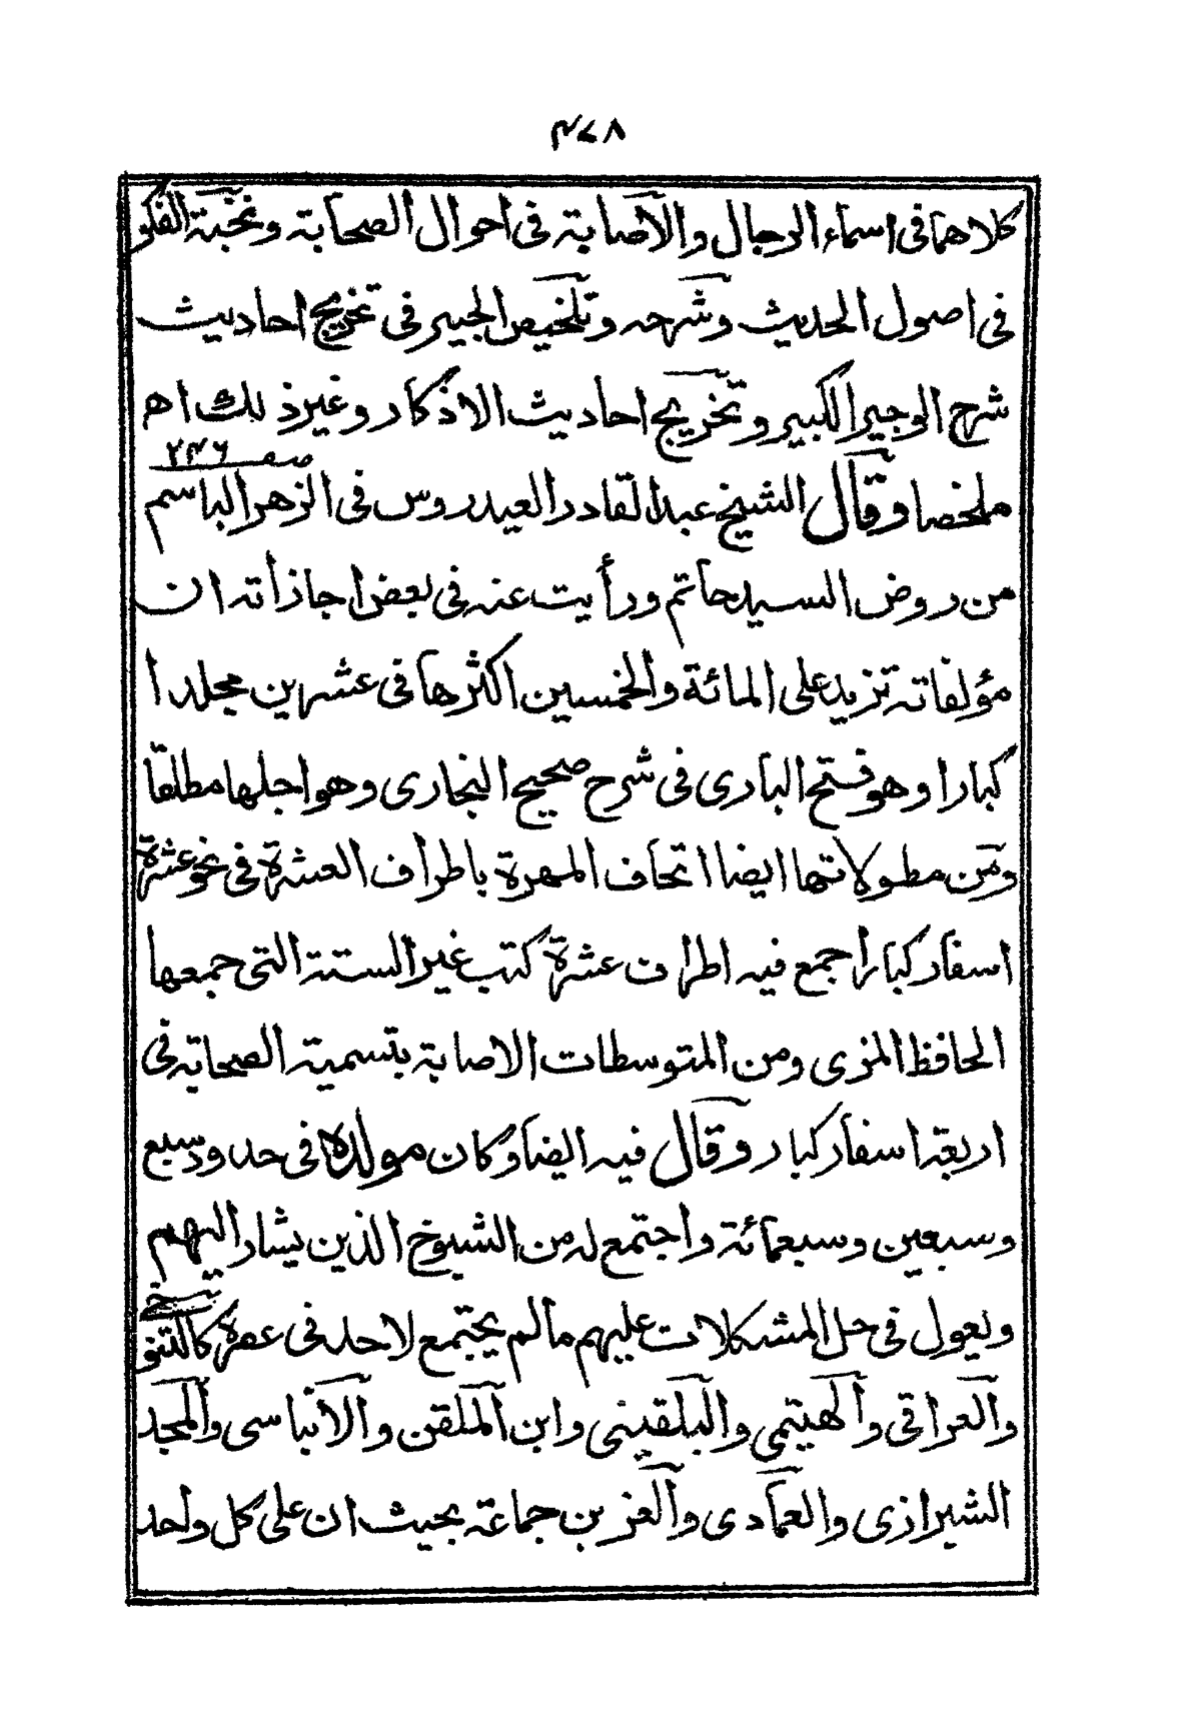 ٣٧٨
كلاهما فى اسماء الرجال والاصابة فى احوال الصحابة ونخبة الفكر
فى اصول الحديث وشرحه وتلخيص الحبير فى تخريج احاديث
شرح الوجيز الكبير وتخريج احاديث الاذكار وغير ذلك اه
صـ ٢٣٦
ملخصا وقال الشيخ عبد القادر العيدروس فى الزهر الباسم
من روض السيد حاتم ورأيت عنه فى بعض اجازاته ان
مؤلفاته تزيد على المائة والخمسين اكثرها فى عشرين مجلدا
كبارا وهو فتح البارى فى شرح صحيح البخارى وهو اجلها مطلقا
ومن مطولاتها ايضا اتحاف المهرة باطراف العشرة فى نحو عشرة
اسفار كبار اجمع فيه اطراف عشرة كتب غير الستة التى جمعها
الحافظ المزى ومن المتوسطات الاصابة بتسمية الصحابة فى
اربعة اسفار كبار وقال فيه ايضا وكان مولده فى حدود سبع
وسبعين وسبعمائة واجتمع له من الشيوخ الذين يشار اليهم
ويعول فى حل المشكلات عليهم مالم يجتمع لاحد فى عصره كالتنوخى
والعراقى والهيتمي والبلقينى وابن الملقن والابناسى والمجد
الشيرازى والعمادى والعز بن جماعة بحيث ان على كل واحد